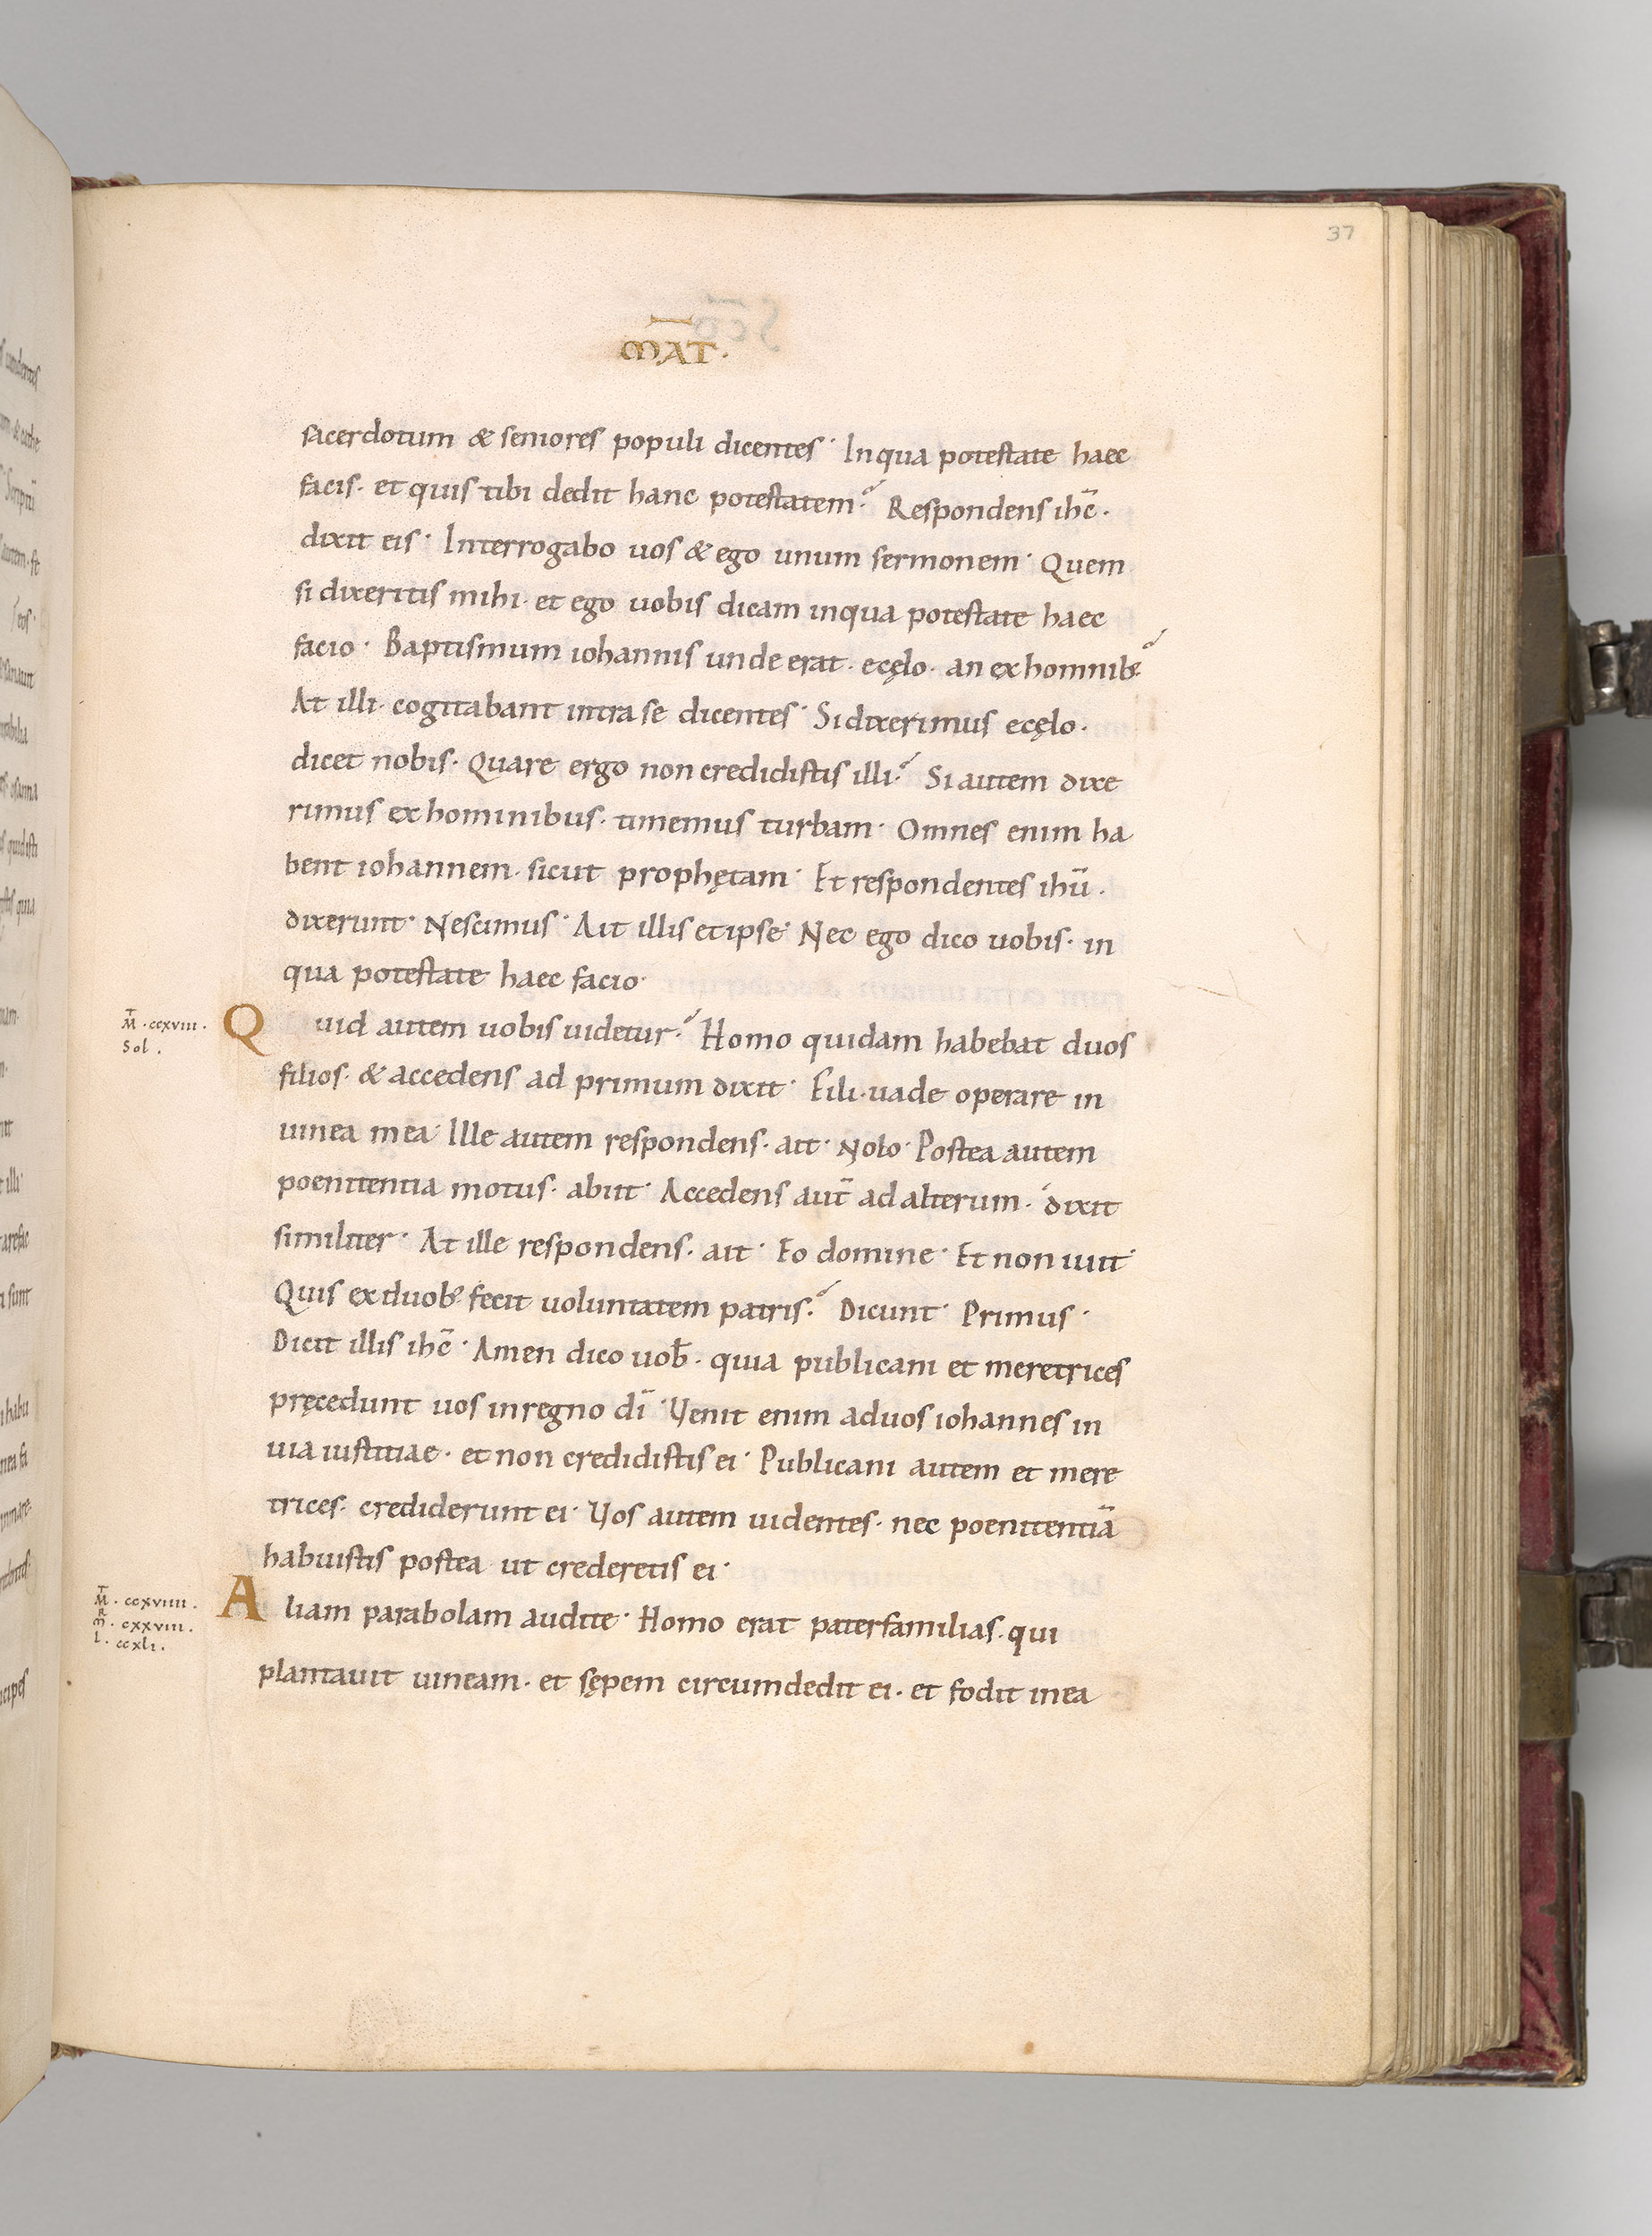 37
MAT̄.
sacerdotum & seniores populi dicentes· Inqua potestate haec
facis· et quis tibi dedit hanc potestatem? Respondens ihc̄·
dixit eis· Interrogabo uos & ego unum sermonem· Quem
si dixeritis mihi· et ego uobis dicam inqua potestate haec
facio· Baptismum iohannis unde erat· ecęlo· an ex hominib;?
At illi· cogitabant intra se dicentes· Si dixerimus ecęlo·
dicet nobis· Quare ergo non credidistis illi? Si autem dixe
rimus ex hominibus· timemus turbam· Omnes enim ha
bent iohannem· sicut prophętam· Et respondentes ihū·
dixerunt· Nescimus· Ait illis et ipse· Nec ego dico uobis· in
qua potestate haec facio·
M̄·ccxviii·
Sol·
Quid autem uobis uidetur? Homo quidam habebat duos
filios· & accedens ad primum dixit· Fili· uade operare in
uinea mea· Ille autem respondens· ait· Nolo· Postea autem
poenitentia motus· abiit· Accedens aut̄ ad alterum· dixit
similiter· At ille respondens· ait· Eo domine· Et non iuit·
Quis ex duob; fecit uoluntatem patris? Dicunt· Primus·
Dicit illis ihc̄· Amen dico uob̄· quia publicani et meretrices
pręcedunt uos in regno dī· Venit enim ad uos iohannes in
uia iustitiae· et non credidistis ei· Publicani autem et mere
trices· crediderunt ei· Vos autem uidentes· nec poenitentiā
habuistis postea ut crederetis ei·
M̄·ccxviiii·
M̄·cxxviii·
L·ccxli·
Aliam parabolam audite· Homo erat paterfamilias· qui
plantauit uineam· et sępem circumdedit ei· et fodit in ea